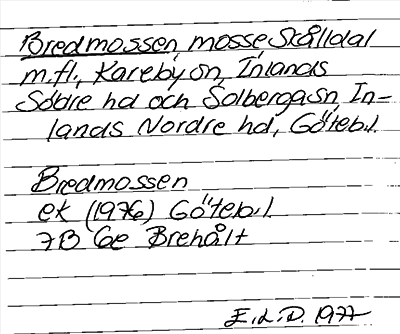 Bredmossen, mosse Skålldal
m.fl., Kareby sn, Inlands
Södre hd och Solberga sn, In-
lands Nordre hd, Göteb. l.
Bredmossen
ek (1976) Göteb. l
7B 6e Brehålt
E.L.D. 1977